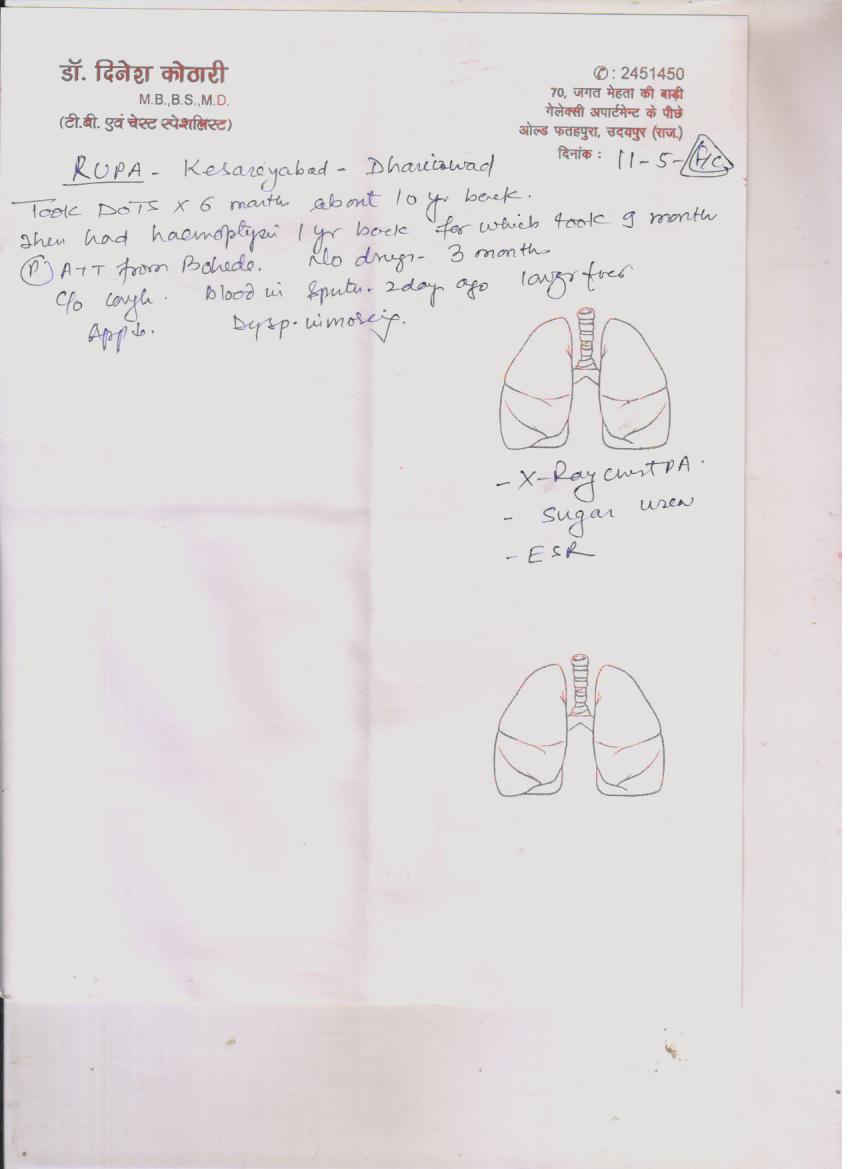 डॉ. दिनेश कोठारी
M.B.,B.S.,M.D.
(टी.बी. एवं चेस्ट स्पेशलिस्ट)
✆: 2451450
70, जगत मेहता की बाड़ी
गेलेक्सी अपार्टमेन्ट के पीछे
ओल्ड फतहपुरा, उदयपुर (राज.)
दिनांक : 11-5-
RUPA - Kesareyabad - Dhariawad
Took DOTS X 6 months about 10 yr back.
Then had haemoptysis 1 yr back for which took 9 month
(P) ATT from Bohede. No drugs - 3 months
C/o cough. Blood in Sputum. 2 day ago
App ↓. Dysp.
- X-Ray chest PA.
- Sugar urea
- ESR